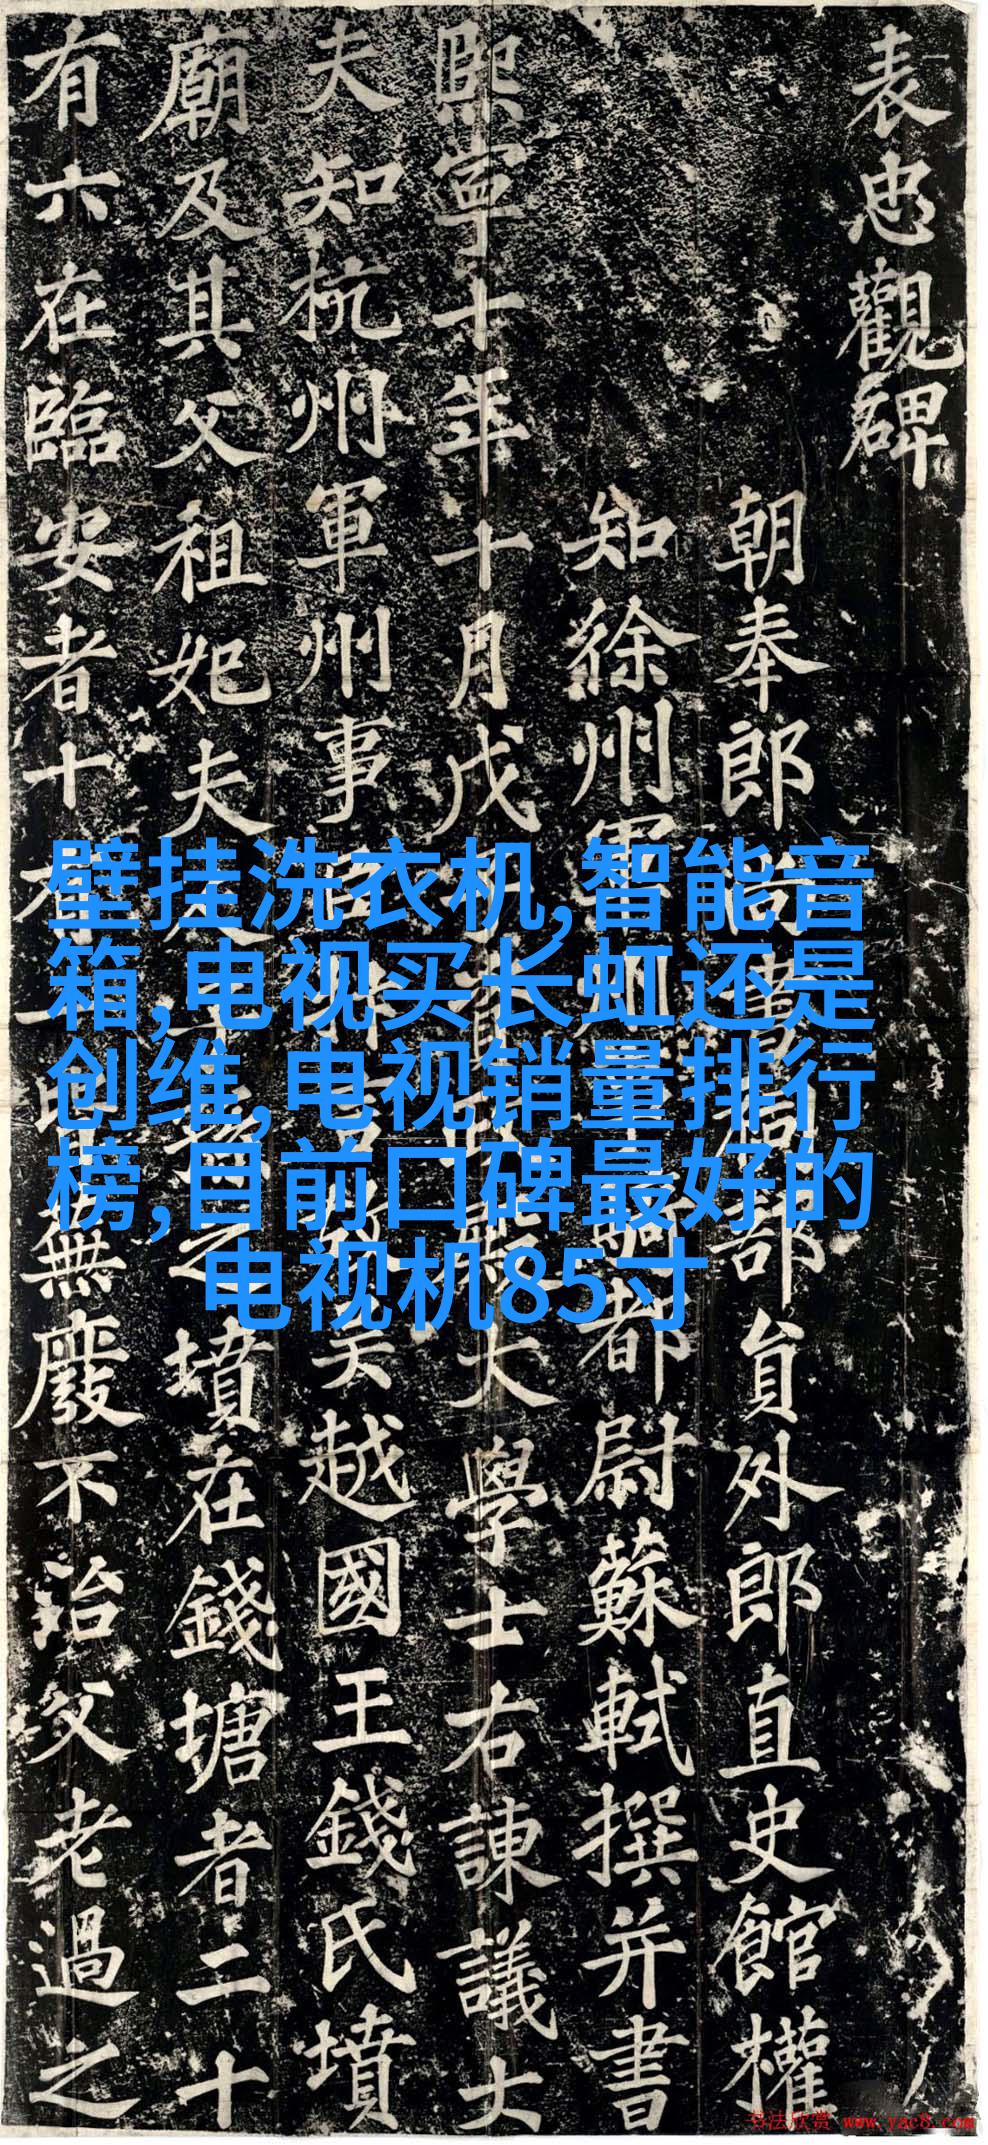 表忠觀碑
朝奉郎尚書祠部員外郎直史館權
知徐州軍州事騎都尉蘇軾撰并書
熙寧十年十月戊子資政殿大學士右諫議大
夫知杭州軍州事臣抃言故吳越國王錢氏墳
廟及其父祖妃夫人子孫之墳在錢塘者二十
有六在臨安者十有一皆蕪廢不治父老過之
壁挂洗衣机,智能音
箱,电视买长虹还是
创维,电视销量排行
榜,目前口碑最好的
电视机85寸
书法欣赏 www.yac8.com